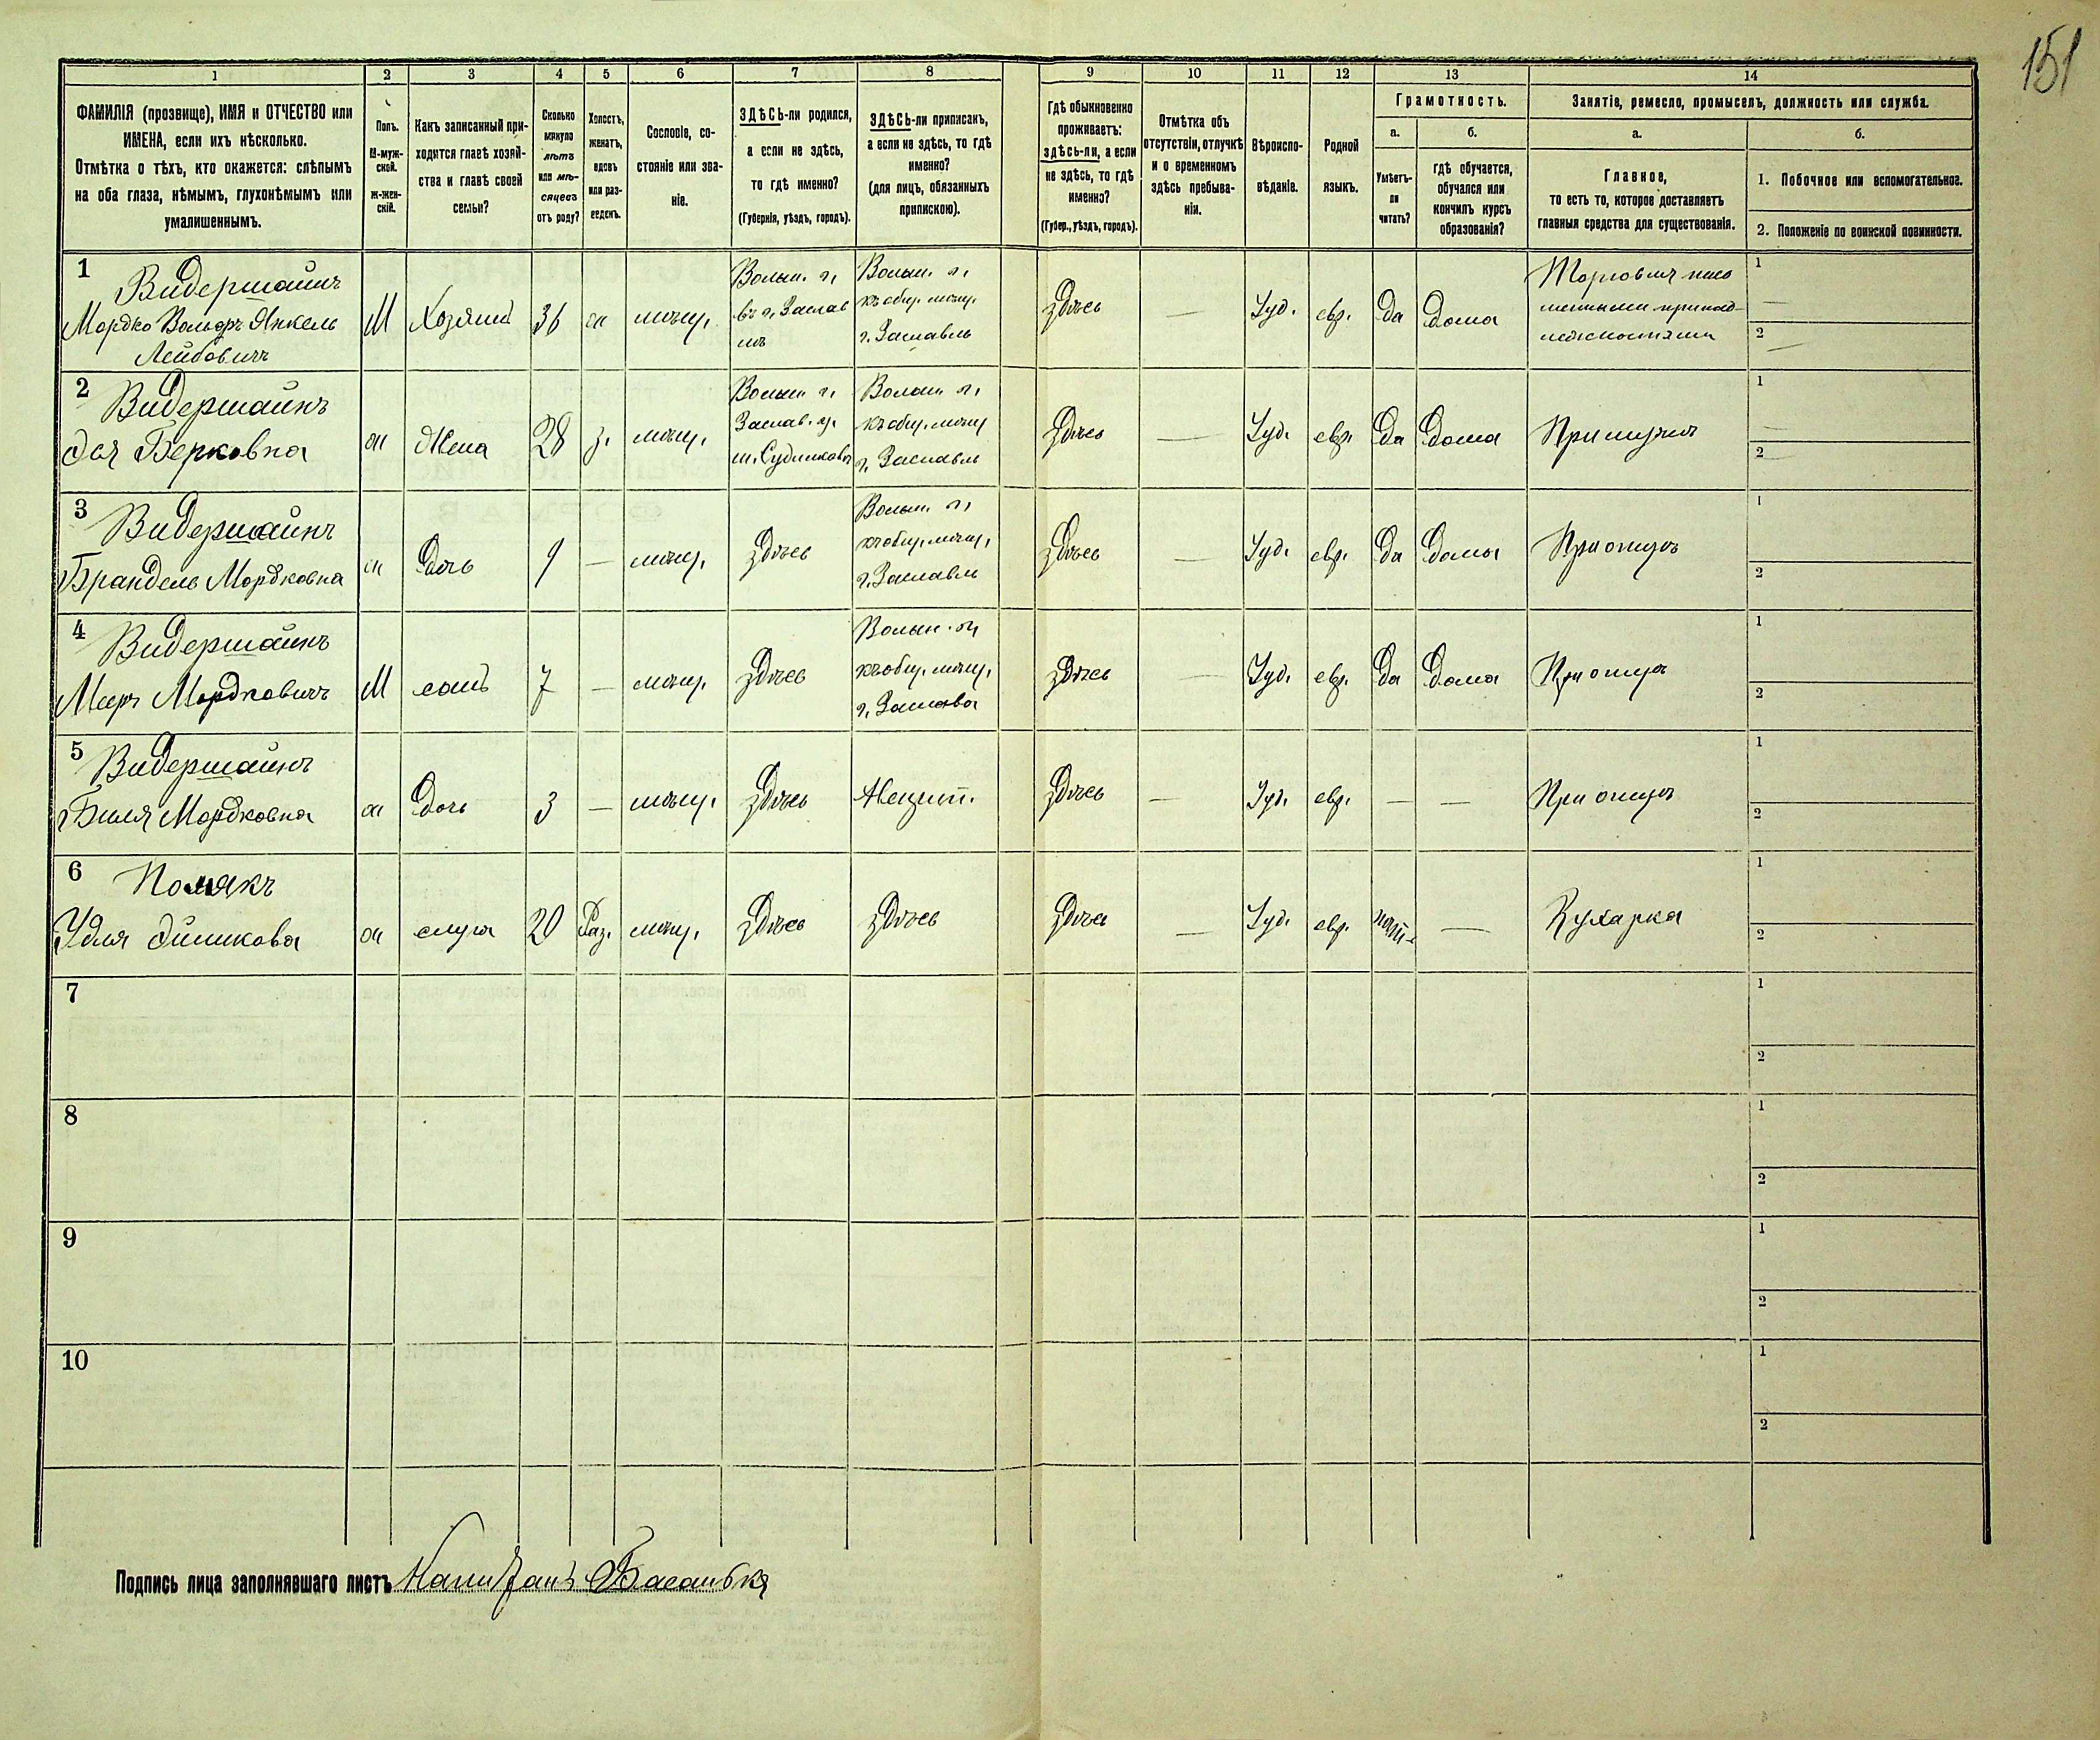 151
1 2 3 4 5 6 7 8 9 10 11 12 13 14
ФАМИЛІЯ (прозвище), ИМЯ и ОТЧЕСТВО или
ИМЕНА, если ихъ нѣсколько.
Отмѣтка о тѣхъ, кто окажется: слѣпымъ
на оба глаза, нѣмымъ, глухонѣмымъ или
умалишеннымъ.
Полъ.
М-муж-
ской.
ж-жен-
скій.
Какъ записанный при-
ходится главѣ хозяй-
ства и главѣ своей
семьи?
Сколько
минуло
лѣтъ
или мѣ-
сяцевъ
отъ роду?
Холостъ,
женатъ,
вдовъ
или раз-
веденъ.
Сословіе, со-
стояніе или зва-
ніе.
ЗДѢСЬ-ли родился,
а если не здѣсь,
то гдѣ именно?
(Губернія, уѣздъ, городъ).
ЗДѢСЬ-ли приписанъ,
а если не здѣсь, то гдѣ
именно?
(для лицъ, обязанныхъ
припискою).
Гдѣ обыкновенно
проживаетъ:
здѣсь-ли, а если
не здѣсь, то гдѣ
именно?
(Губер., уѣздъ, городъ).
Отмѣтка объ
отсутствіи, отлучкѣ
и о временномъ
здѣсь пребыва-
ніи.
Вѣроиспо-
вѣданіе.
Родной
языкъ.
Грамотность.
а.
Умѣетъ-
ли
читать?
б.
гдѣ обучается,
обучался или
кончилъ курсъ
образованія?
Занятіе, ремесло, промыселъ, должность или служба.
а.
Главное,
то есть то, которое доставляетъ
главныя средства для существованія.
б.
1. Побочное или вспомогательное.
2. Положеніе по воинской повинности.
1
Видершаинъ
Мордко Вольфъ Янкель
Лейбовичъ
М
Хозяинъ
36
ж
мѣщ.
Волын. г.
въ г. Заслав
лѣ
Волын. г.
къ общ. мѣщ.
г. Заславль
здѣсь
—
Іуд.
евр.
да
дома
Торговля пись
менными принад-
лежностями
1
—
2
—
2
Видершаинъ
Эся Берковна
ж
Жена
28
з.
мѣщ.
Волын г.
Заслав. у.
м. Судилковъ
Волын г.
къ общ. мѣщ
г. Заславль
здѣсь
—
Іуд.
евр.
да
дома
При мужѣ
1
—
2
—
3
Видершаинъ
Брандель Мордковна
ж
дочь
9
—
мѣщ.
здѣсь
Волын. г.
къ общ. мѣщ.
г. Заславль
здѣсь
—
Іуд.
евр.
да
дома
При отцѣ
1
2
4
Видершаинъ
Меръ Мордковичъ
М
сынъ
7
—
мѣщ.
здѣсь
Волын. г.
къ общ. мѣщ.
здѣсь
—
Іуд.
евр.
да
дома
При отцѣ
1
2
5
Видершаинъ
Мордковна
ж
дочь
3
—
мѣщ.
здѣсь
здѣсь
—
Іуд.
евр.
—
—
При отцѣ
1
2
6
Полякъ
Удля
ж
слуга
20
Раз.
мѣщ.
здѣсь
здѣсь
здѣсь
—
Іуд.
евр.
нѣтъ
—
Кухарка
1
2
7
1
2
8
1
2
9
1
2
10
1
2
Подпись лица заполнявшаго листъ